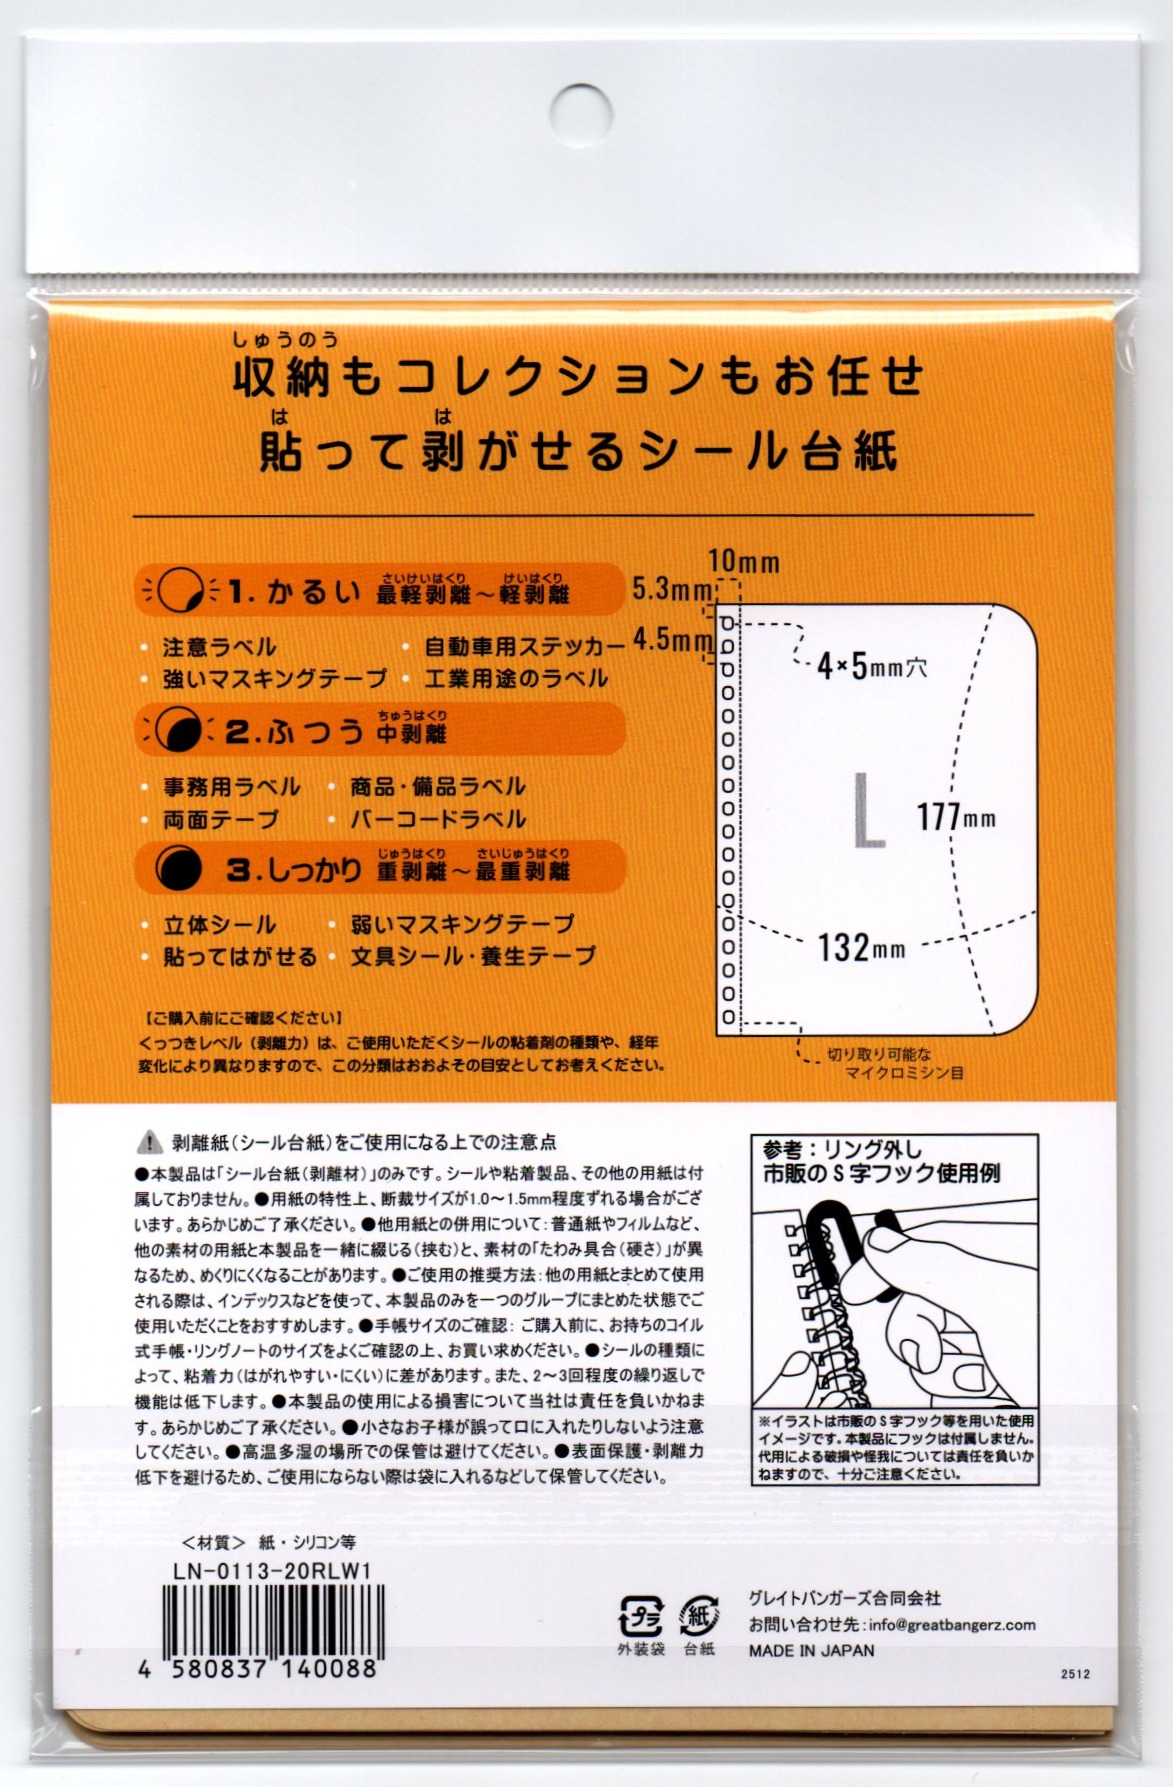 しゅうのう
収納もコレクションもお任せ
は は
貼って剥がせるシール台紙
1. かるい 最軽剥離～軽剥離
さいけいはくり けいはくり
・注意ラベル ・自動車用ステッカー
・強いマスキングテープ ・工業用途のラベル
2.ふつう 中剥離
ちゅうはくり
・事務用ラベル ・商品・備品ラベル
・両面テープ ・バーコードラベル
3.しっかり 重剥離～最重剥離
じゅうはくり さいじゅうはくり
・立体シール ・弱いマスキングテープ
・貼ってはがせる ・文具シール・養生テープ
【ご購入前にご確認ください】
くっつきレベル（剥離力）は、ご使用いただくシールの粘着剤の種類や、経年
変化により異なりますので、この分類はおおよその目安としてお考えください。
10mm
5.3mm
4.5mm
4×5mm穴
L
177mm
132mm
切り取り可能な
マイクロミシン目
剥離紙（シール台紙）をご使用になる上での注意点
●本製品は「シール台紙（剥離材）」のみです。シールや粘着製品、その他の用紙は付
属しておりません。●用紙の特性上、断裁サイズが1.0～1.5mm程度ずれる場合がござ
います。あらかじめご了承ください。●他用紙との併用について：普通紙やフィルムなど、
他の素材の用紙と本製品を一緒に綴じる（挟む）と、素材の「たわみ具合（硬さ）」が異
なるため、めくりにくくなることがあります。●ご使用の推奨方法：他の用紙とまとめて使用
される際は、インデックスなどを使って、本製品のみを一つのグループにまとめた状態でご
使用いただくことをおすすめします。●手帳サイズのご確認：ご購入前に、お持ちのコイル
式手帳・リングノートのサイズをよくご確認の上、お買い求めください。●シールの種類に
よって、粘着力（はがれやすい・にくい）に差があります。また、2～3回程度の繰り返しで
機能は低下します。●本製品の使用による損害について当社は責任を負いかねま
す。あらかじめご了承ください。●小さなお子様が誤って口に入れたりしないよう注意
してください。●高温多湿の場所での保管は避けてください。●表面保護・剥離力
低下を避けるため、ご使用にならない際は袋に入れるなどして保管してください。
参考：リング外し
市販のS字フック使用例
※イラストは市販のS字フック等を用いた使用
イメージです。本製品にフックは付属しません。
代用による破損や怪我については責任を負いか
ねますので、十分ご注意ください。
＜材質＞ 紙・シリコン等
LN-0113-20RLW1
4 580837 140088
プラ
外装袋
紙
台紙
グレイトバンガーズ合同会社
お問い合わせ先：info@greatbangerz.com
MADE IN JAPAN
2512